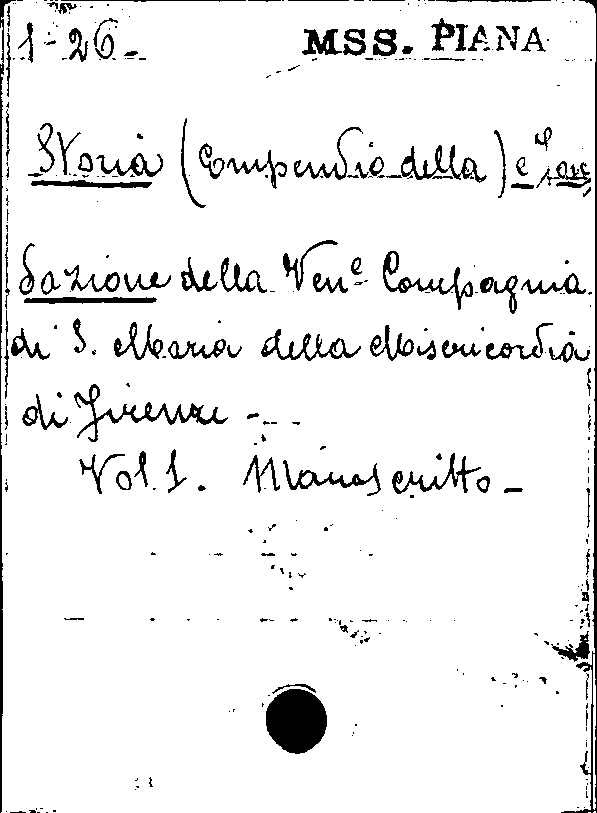 1-26- MSS. PIANA
Storia (Compendio della) e
dazione della Ven.e Compagnia
di S. Maria della Misericordia
di Firenze -
Vol 1. Manoscritto -